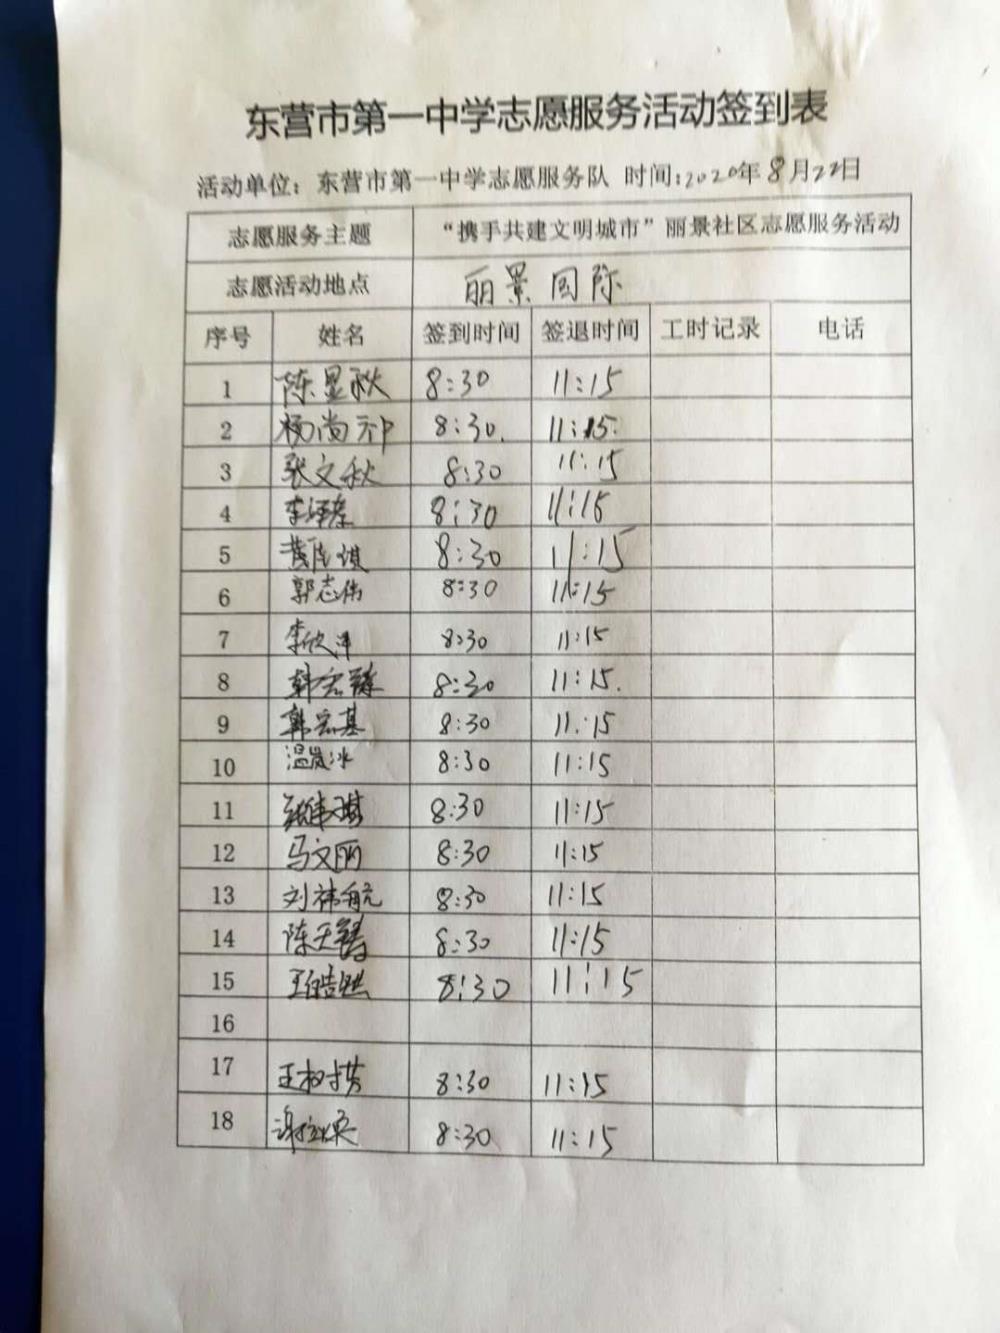 东营市第一中学志愿服务活动签到表
活动单位：东营市第一中学志愿服务队 时间:2020年8月22日
志愿服务主题 “携手共建文明城市”丽景社区志愿服务活动
志愿活动地点 丽景国际
序号 姓名 签到时间 签退时间 工时记录 电话
1 陈显秋 8:30 11:15
2 杨尚 8:30. 11:15.
3 张文秋 8:30 11:15
4 李泽 8:30 11:15
5 8:30 11:15
6 郭志伟 8:30 11:15
7 李欣洋 8:30 11:15
8 韩宏 8:30 11:15.
9 韩宏基 8:30 11:15
10 温 冰 8:30 11:15
11 张 8:30 11:15
12 马文丽 8:30 11:15
13 刘祎航 8:30 11:15
14 陈天 8:30 11:15
15 王皓 8:30 11:15
16
17 王 8:30 11:15
18 谢 8:30 11:15